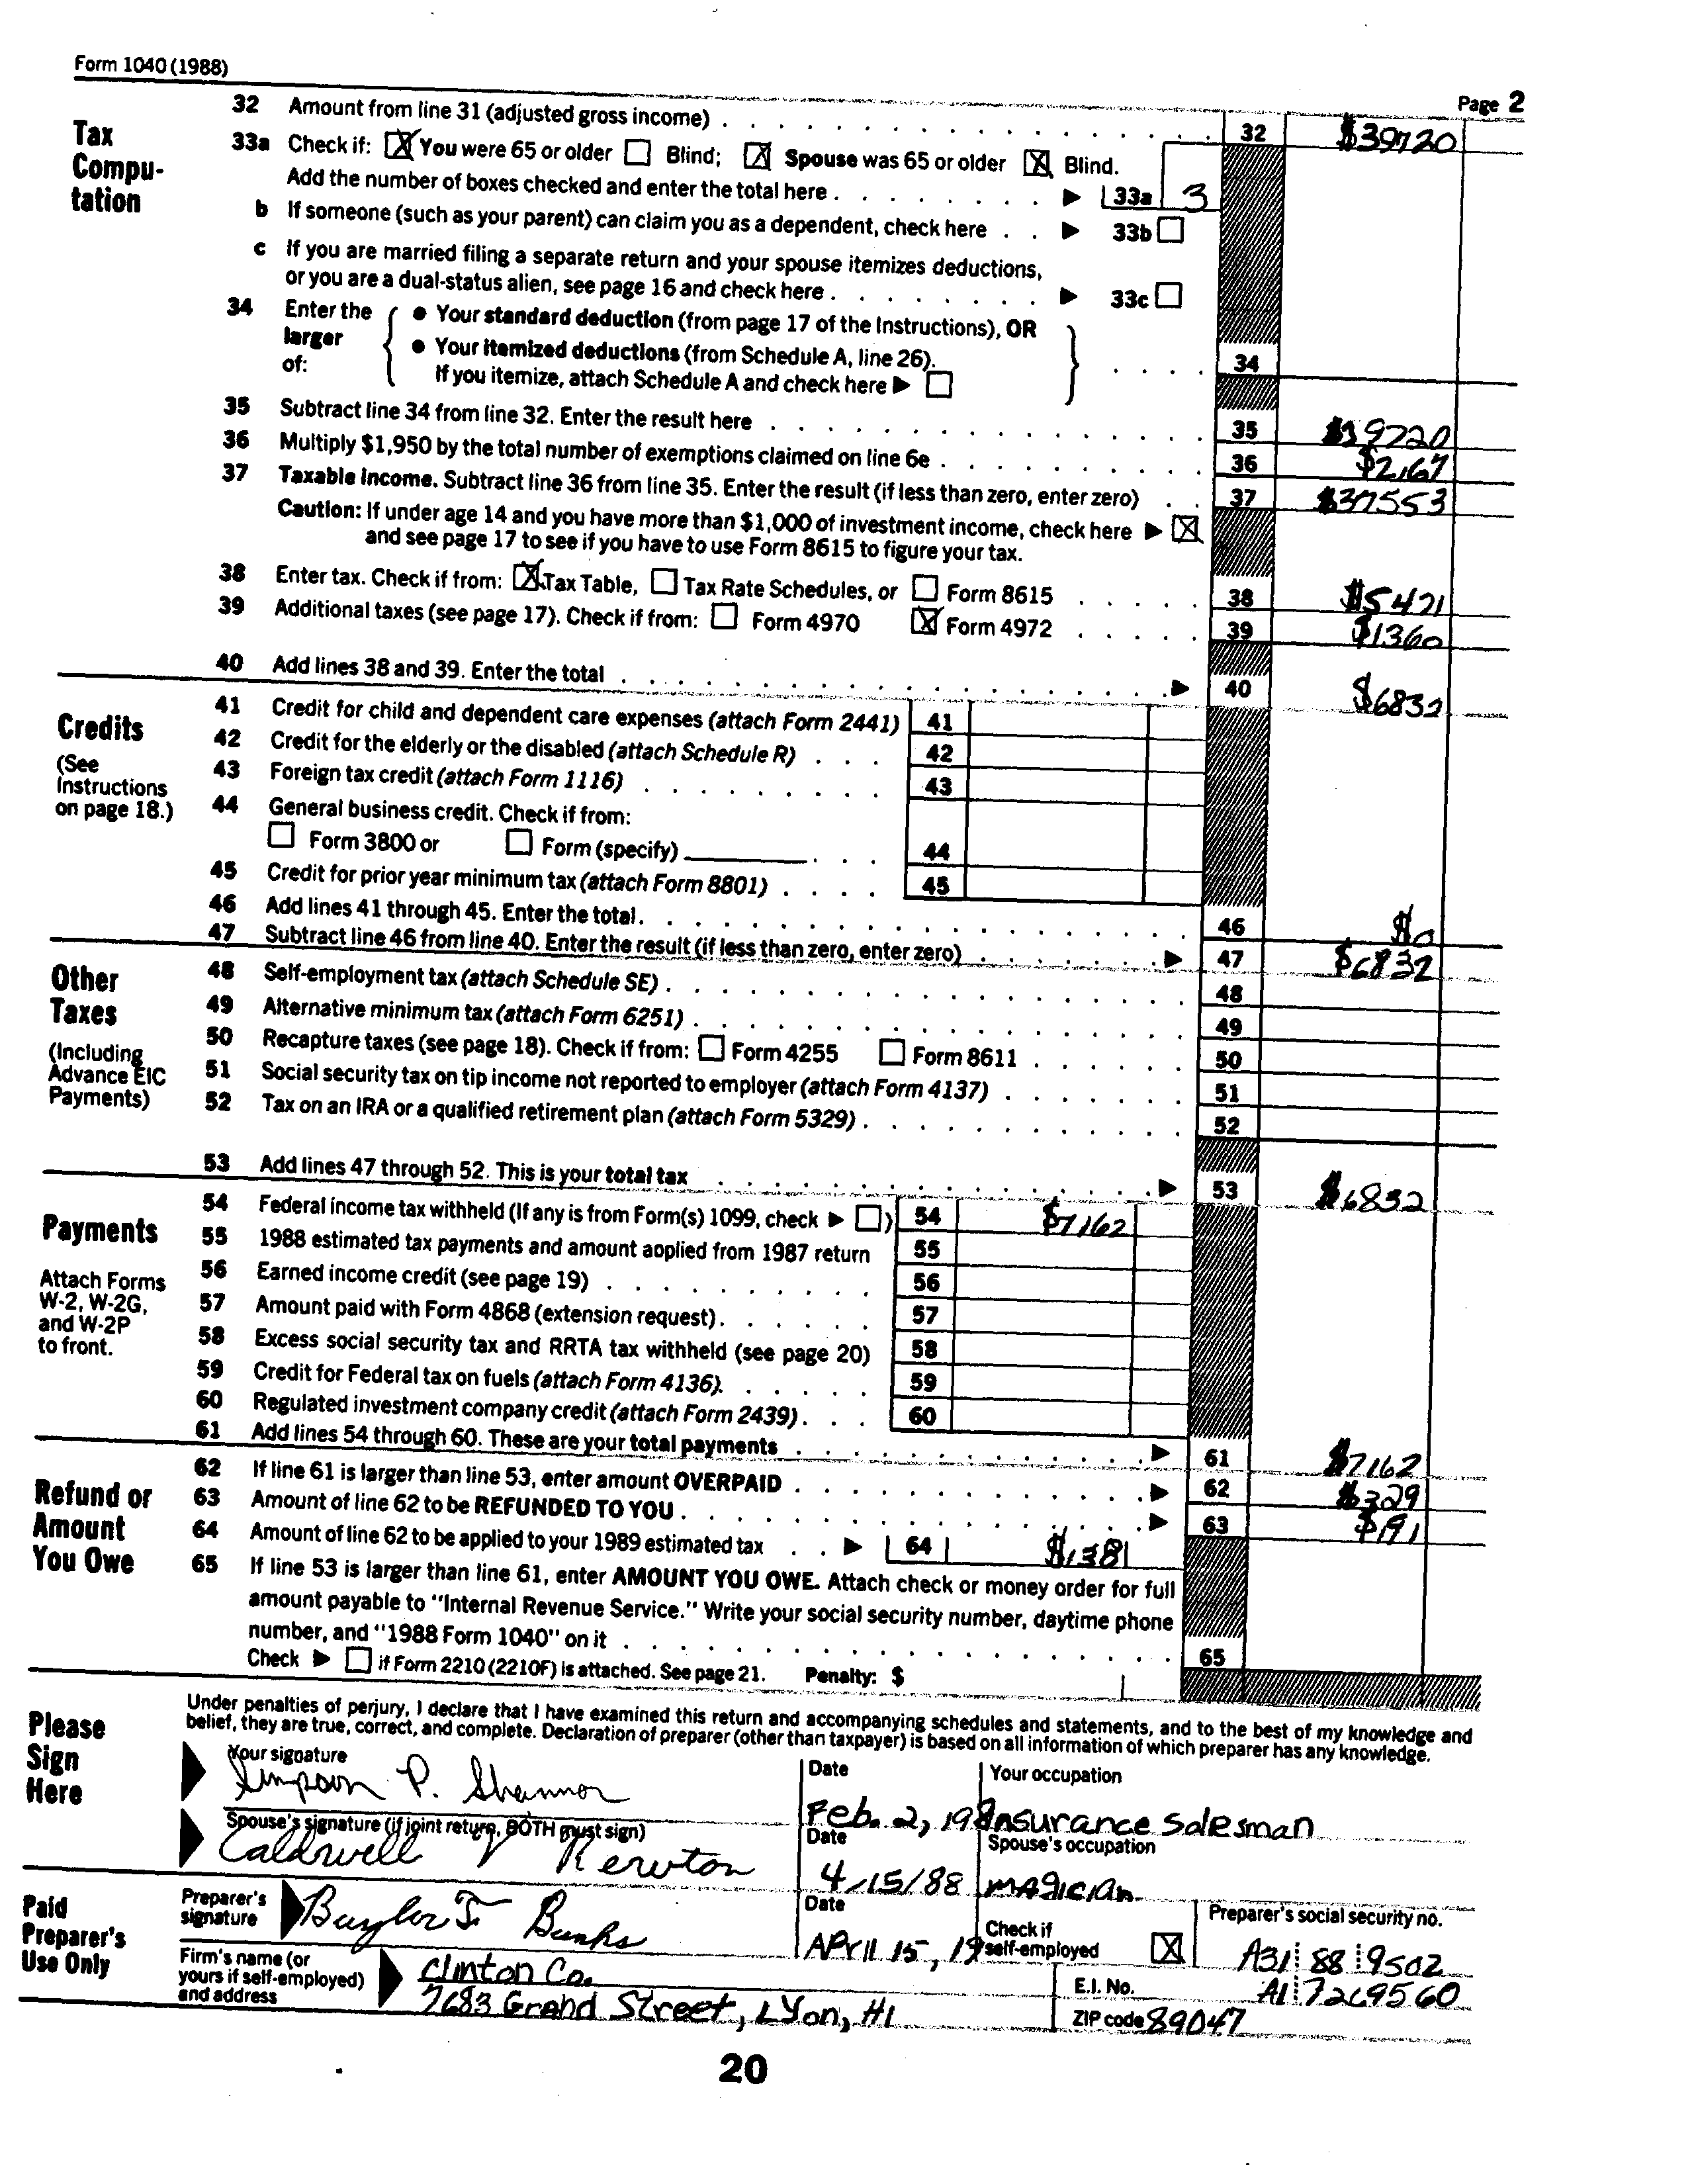 Form 1040 (1988)
Page 2
Tax Computation
32 Amount from line 31 (adjusted gross income) 32 $39720
33a Check if: [X] You were 65 or older [ ] Blind; [X] Spouse was 65 or older [X] Blind.
Add the number of boxes checked and enter the total here ▶ 33a 3
b If someone (such as your parent) can claim you as a dependent, check here ▶ 33b [ ]
c If you are married filing a separate return and your spouse itemizes deductions,
or you are a dual-status alien, see page 16 and check here ▶ 33c [ ]
34 Enter the larger of: { ● Your standard deduction (from page 17 of the Instructions), OR
● Your itemized deductions (from Schedule A, line 26).
If you itemize, attach Schedule A and check here ▶ [ ] } 34
35 Subtract line 34 from line 32. Enter the result here 35 $39720
36 Multiply $1,950 by the total number of exemptions claimed on line 6e 36 $2167
37 Taxable income. Subtract line 36 from line 35. Enter the result (if less than zero, enter zero) 37 $37553
Caution: If under age 14 and you have more than $1,000 of investment income, check here ▶ [X]
and see page 17 to see if you have to use Form 8615 to figure your tax.
38 Enter tax. Check if from: [X] Tax Table, [ ] Tax Rate Schedules, or [ ] Form 8615 38 $5471
39 Additional taxes (see page 17). Check if from: [ ] Form 4970 [X] Form 4972 39 $1360
40 Add lines 38 and 39. Enter the total ▶ 40 $6832
Credits
(See Instructions on page 18.)
41 Credit for child and dependent care expenses (attach Form 2441) 41
42 Credit for the elderly or the disabled (attach Schedule R) 42
43 Foreign tax credit (attach Form 1116) 43
44 General business credit. Check if from:
[ ] Form 3800 or [ ] Form (specify) 44
45 Credit for prior year minimum tax (attach Form 8801) 45
46 Add lines 41 through 45. Enter the total. 46 $0
47 Subtract line 46 from line 40. Enter the result (if less than zero, enter zero) ▶ 47 $6832
Other Taxes
(Including Advance EIC Payments)
48 Self-employment tax (attach Schedule SE) 48
49 Alternative minimum tax (attach Form 6251) 49
50 Recapture taxes (see page 18). Check if from: [ ] Form 4255 [ ] Form 8611 50
51 Social security tax on tip income not reported to employer (attach Form 4137) 51
52 Tax on an IRA or a qualified retirement plan (attach Form 5329) 52
53 Add lines 47 through 52. This is your total tax ▶ 53 $6832
Payments
Attach Forms W-2, W-2G, and W-2P to front.
54 Federal income tax withheld (If any is from Form(s) 1099, check ▶ [ ]) 54 $7162
55 1988 estimated tax payments and amount applied from 1987 return 55
56 Earned income credit (see page 19) 56
57 Amount paid with Form 4868 (extension request) 57
58 Excess social security tax and RRTA tax withheld (see page 20) 58
59 Credit for Federal tax on fuels (attach Form 4136). 59
60 Regulated investment company credit (attach Form 2439) 60
61 Add lines 54 through 60. These are your total payments ▶ 61 $7162
Refund or Amount You Owe
62 If line 61 is larger than line 53, enter amount OVERPAID ▶ 62 $329
63 Amount of line 62 to be REFUNDED TO YOU ▶ 63 $191
64 Amount of line 62 to be applied to your 1989 estimated tax ▶ 64 $138
65 If line 53 is larger than line 61, enter AMOUNT YOU OWE. Attach check or money order for full
amount payable to "Internal Revenue Service." Write your social security number, daytime phone
number, and "1988 Form 1040" on it 65
Check ▶ [ ] if Form 2210 (2210F) is attached. See page 21. Penalty: $
Please Sign Here
Under penalties of perjury, I declare that I have examined this return and accompanying schedules and statements, and to the best of my knowledge and
belief, they are true, correct, and complete. Declaration of preparer (other than taxpayer) is based on all information of which preparer has any knowledge.
Your signature Date Your occupation
Simpson P. Shannon Feb. 2, 198 Insurance Salesman
Spouse's signature (if joint return, BOTH must sign) Date Spouse's occupation
Caldwell J Newton 4/15/88 Magician
Paid Preparer's Use Only
Preparer's signature Baylor J. Banks Date April 15, 19 Check if self-employed [X] Preparer's social security no. A31 88 9502
Firm's name (or yours if self-employed) and address Clinton Co. E.I. No. A1 7269560
7683 Grand Street, Lyon, HI ZIP code 89047
20